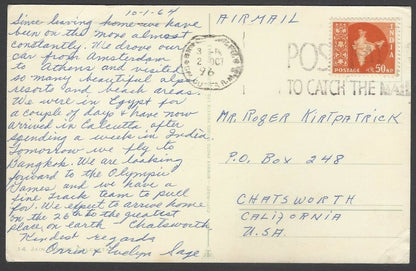 10-1-64
Since leaving home we have
been on the move almost
constantly. We drove our
car from Amsterdam
to Athens and visited
so many beautiful alps
resorts and beach areas.
We were in Egypt for
a couple of days & have now
arrived in Calcutta after
spending a week in India
Tomorrow we fly to
Bangkok. We are looking
forward to the Olympic
Games and we have a
fine track team to pull
for. We expect to arrive home
on the 26th to the greatest
place on earth Chatsworth
Kindest regards
Orrin & Evelyn Sage
AIRMAIL
2 OCT
POS
TO CATCH THE MAIL
INDIA
POSTAGE
50 nP
MR. ROGER KIRTPATRICK
P.O. BOX 248
CHATSWORTH
CALIFORNIA
U.S.A.